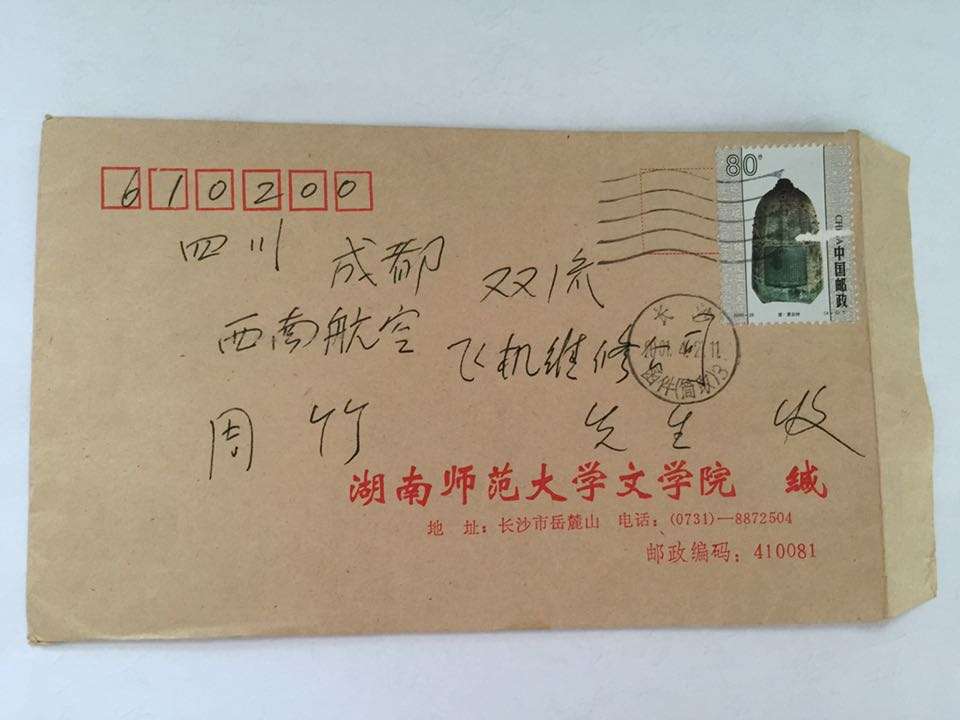 610200
80分
CHINA 中国邮政
四川 成都 双流
西南航空 飞机维修公司
长沙
函件(简航)3
周竹 先生 收
湖南师范大学文学院 缄
地 址：长沙市岳麓山 电话：(0731)—8872504
邮政编码：410081